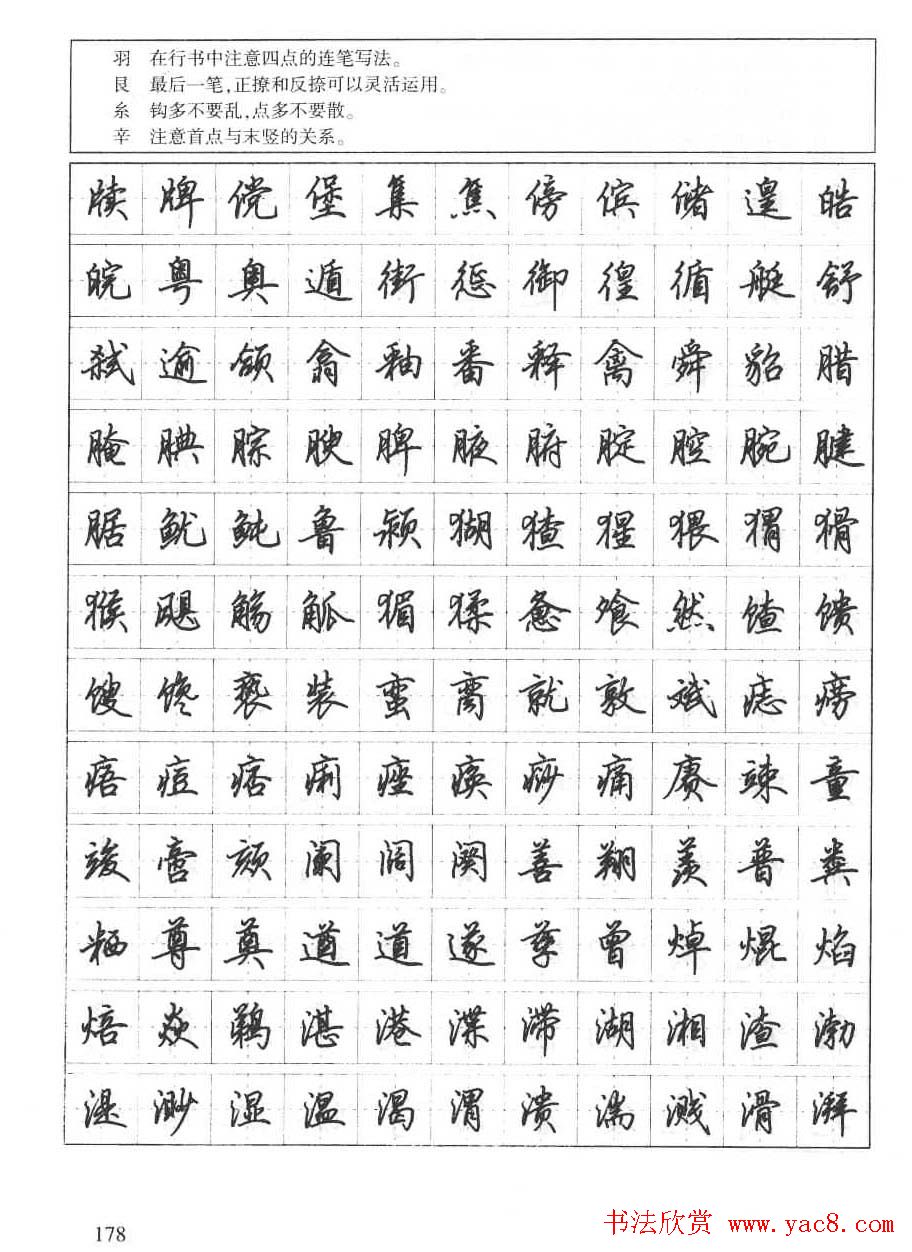 羽 在行书中注意四点的连笔写法。
艮 最后一笔,正撩和反捺可以灵活运用。
糸 钩多不要乱,点多不要散。
辛 注意首点与末竖的关系。
牍 牌 傥 堡 集 焦 傍 傧 储 遑 皓
皖 粤 奥 遁 街 惩 御 徨 循 艇 舒
弑 逾 颌 翕 釉 番 释 禽 舜 貂 腊
腌 腆 腙 腴 脾 腋 腑 腚 腔 腕 腱
腒 鱿 鲀 鲁 颍 猢 猹 猩 猥 猬 猾
猴 飓 觞 觚 猸 猱 惫 飧 然 馇 馈
馊 馋 亵 装 蛮 脔 就 敦 斌 痣 痨
痦 痘 痞 痢 痤 痪 痧 痛 赓 竦 童
竣 啻 颏 阑 阔 阕 善 翔 羡 普 粪
粞 尊 奠 道 道 遂 孳 曾 焯 焜 焰
焙 焱 鹈 湛 港 渫 滞 湖 湘 渣 渤
湜 渺 湿 温 渴 渭 溃 湍 溅 滑 湃
178
书法欣赏 www.yac8.com